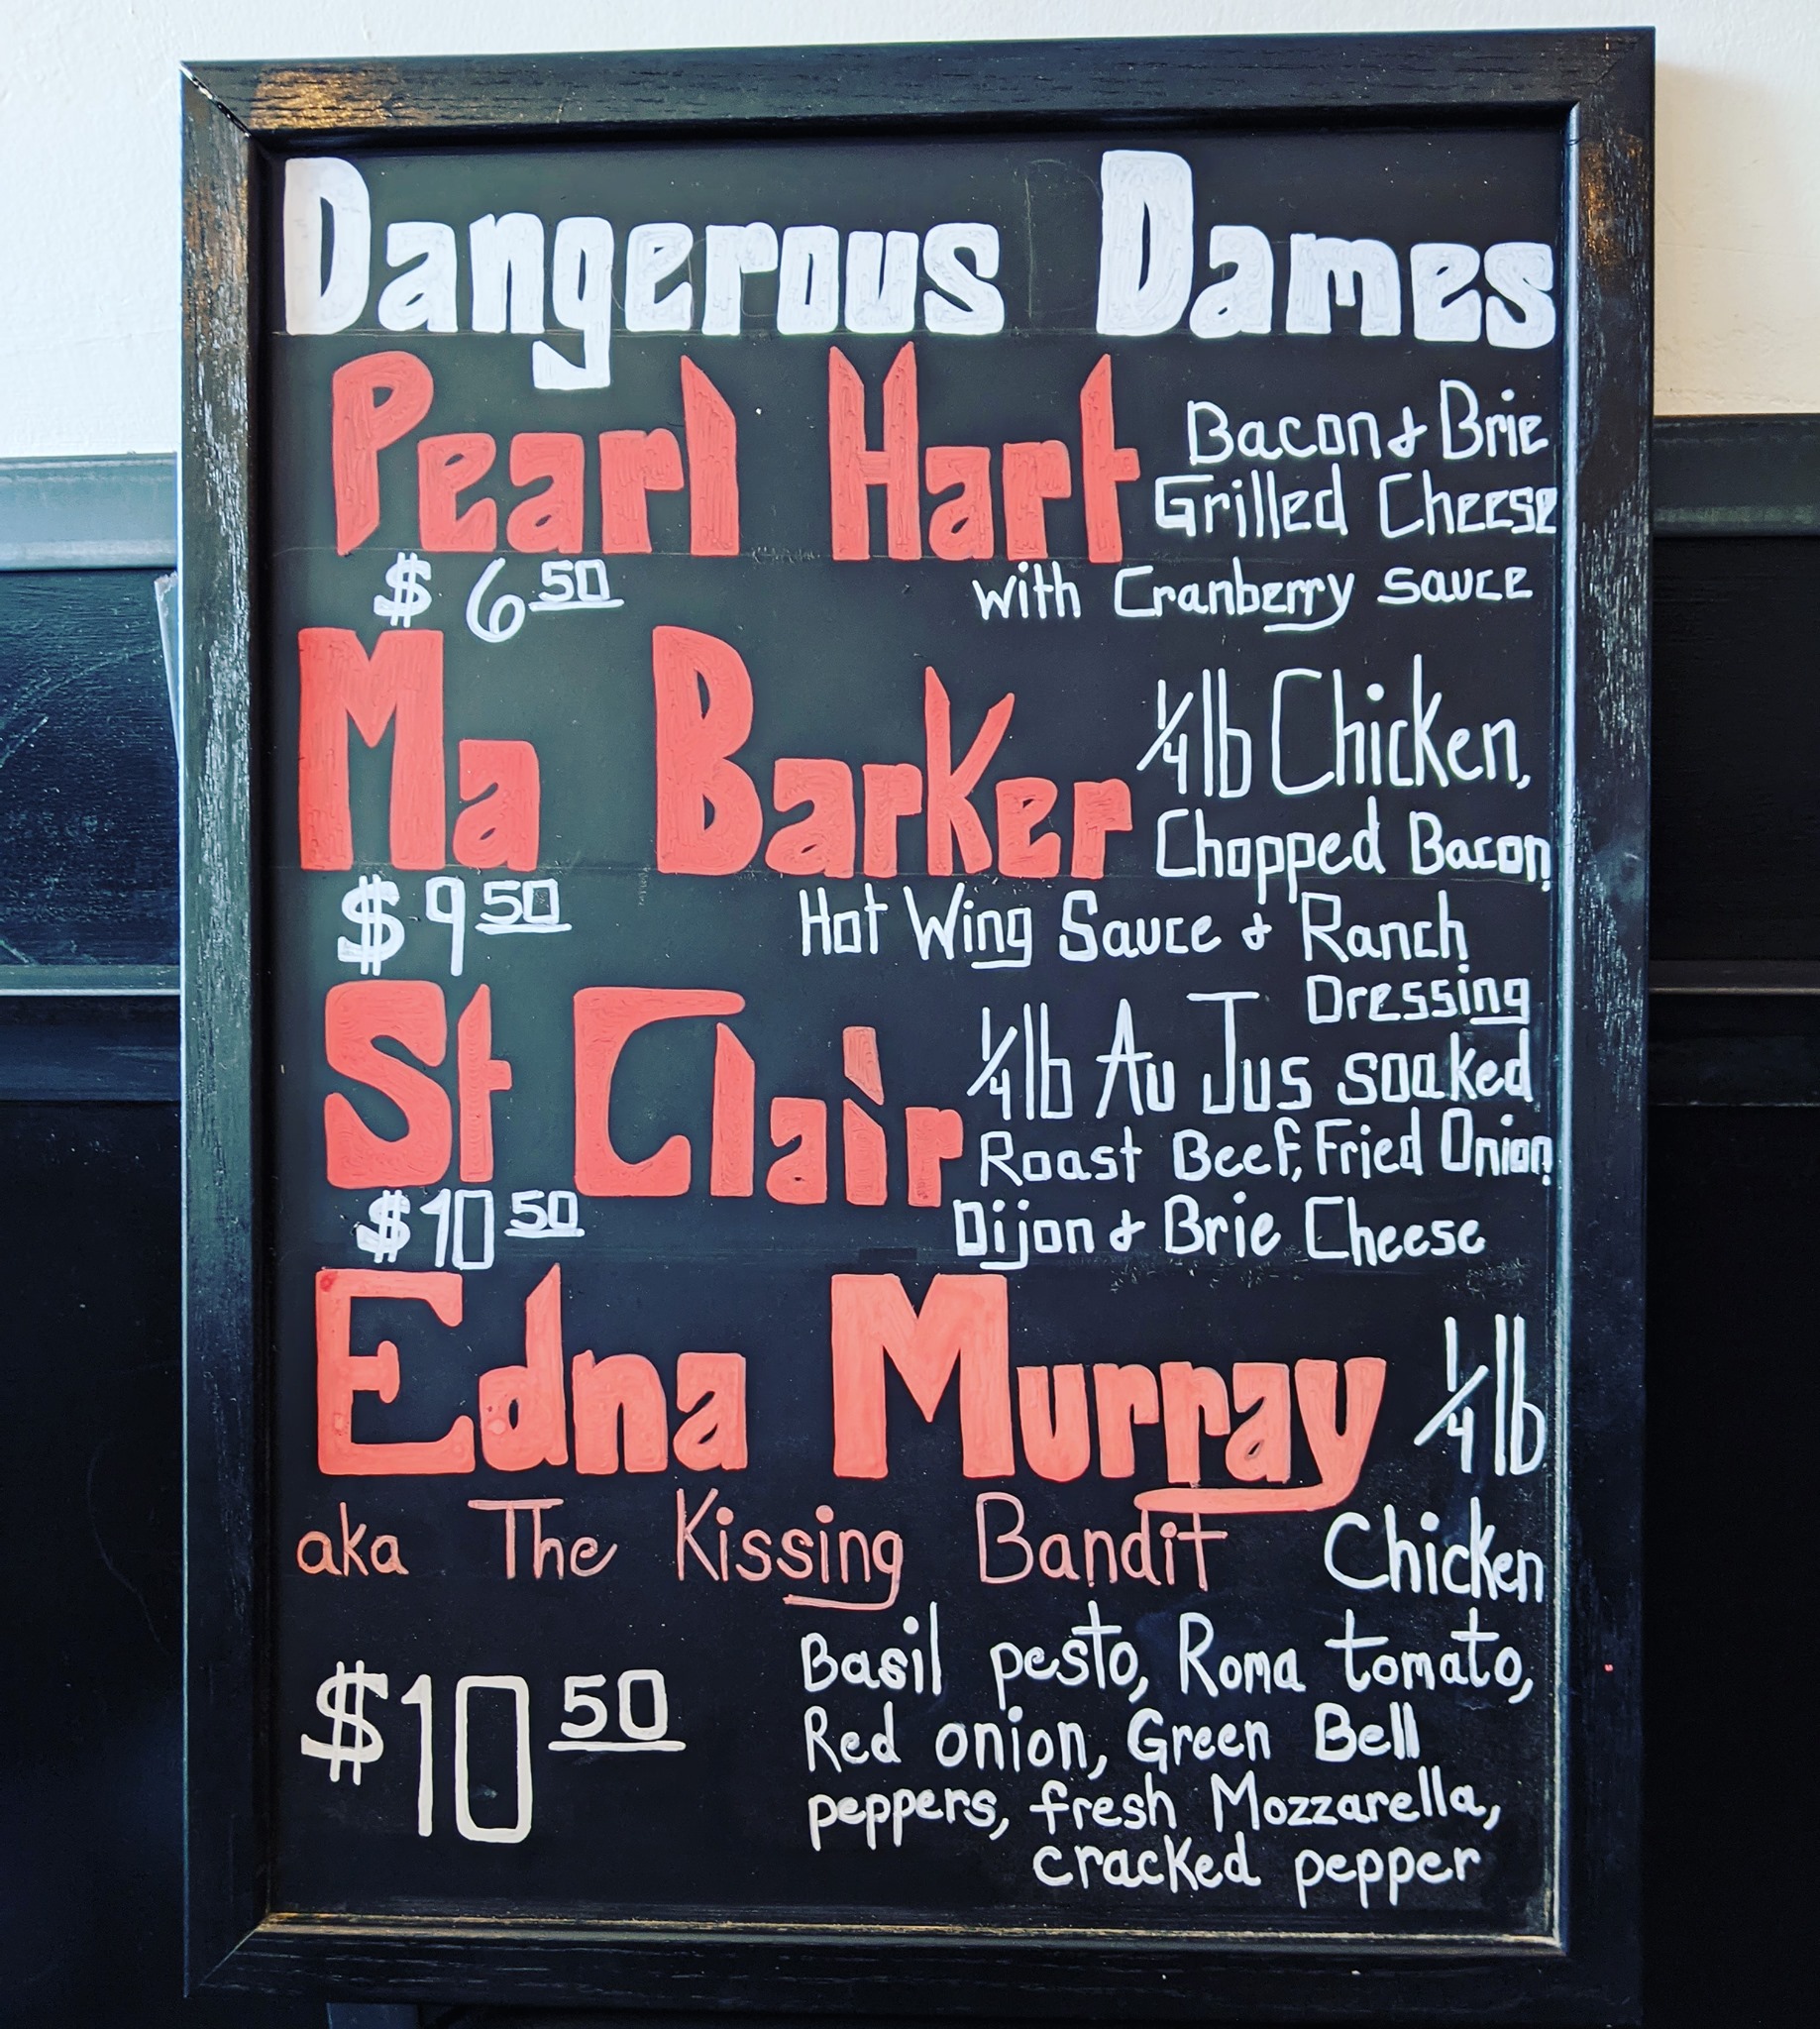 Dangerous Dames
Pearl Hart
Bacon & Brie
Grilled Cheese
with Cranberry sauce
$6.50
Ma Barker
1/4 lb Chicken,
Chopped Bacon,
Hot Wing Sauce & Ranch
Dressing
$9.50
St Clair
1/4 lb Au Jus soaked
Roast Beef, Fried Onion,
Dijon & Brie Cheese
$10.50
Edna Murray
aka The Kissing Bandit
1/4 lb
Chicken
Basil pesto, Roma tomato,
Red onion, Green Bell
peppers, fresh Mozzarella,
cracked pepper
$10.50